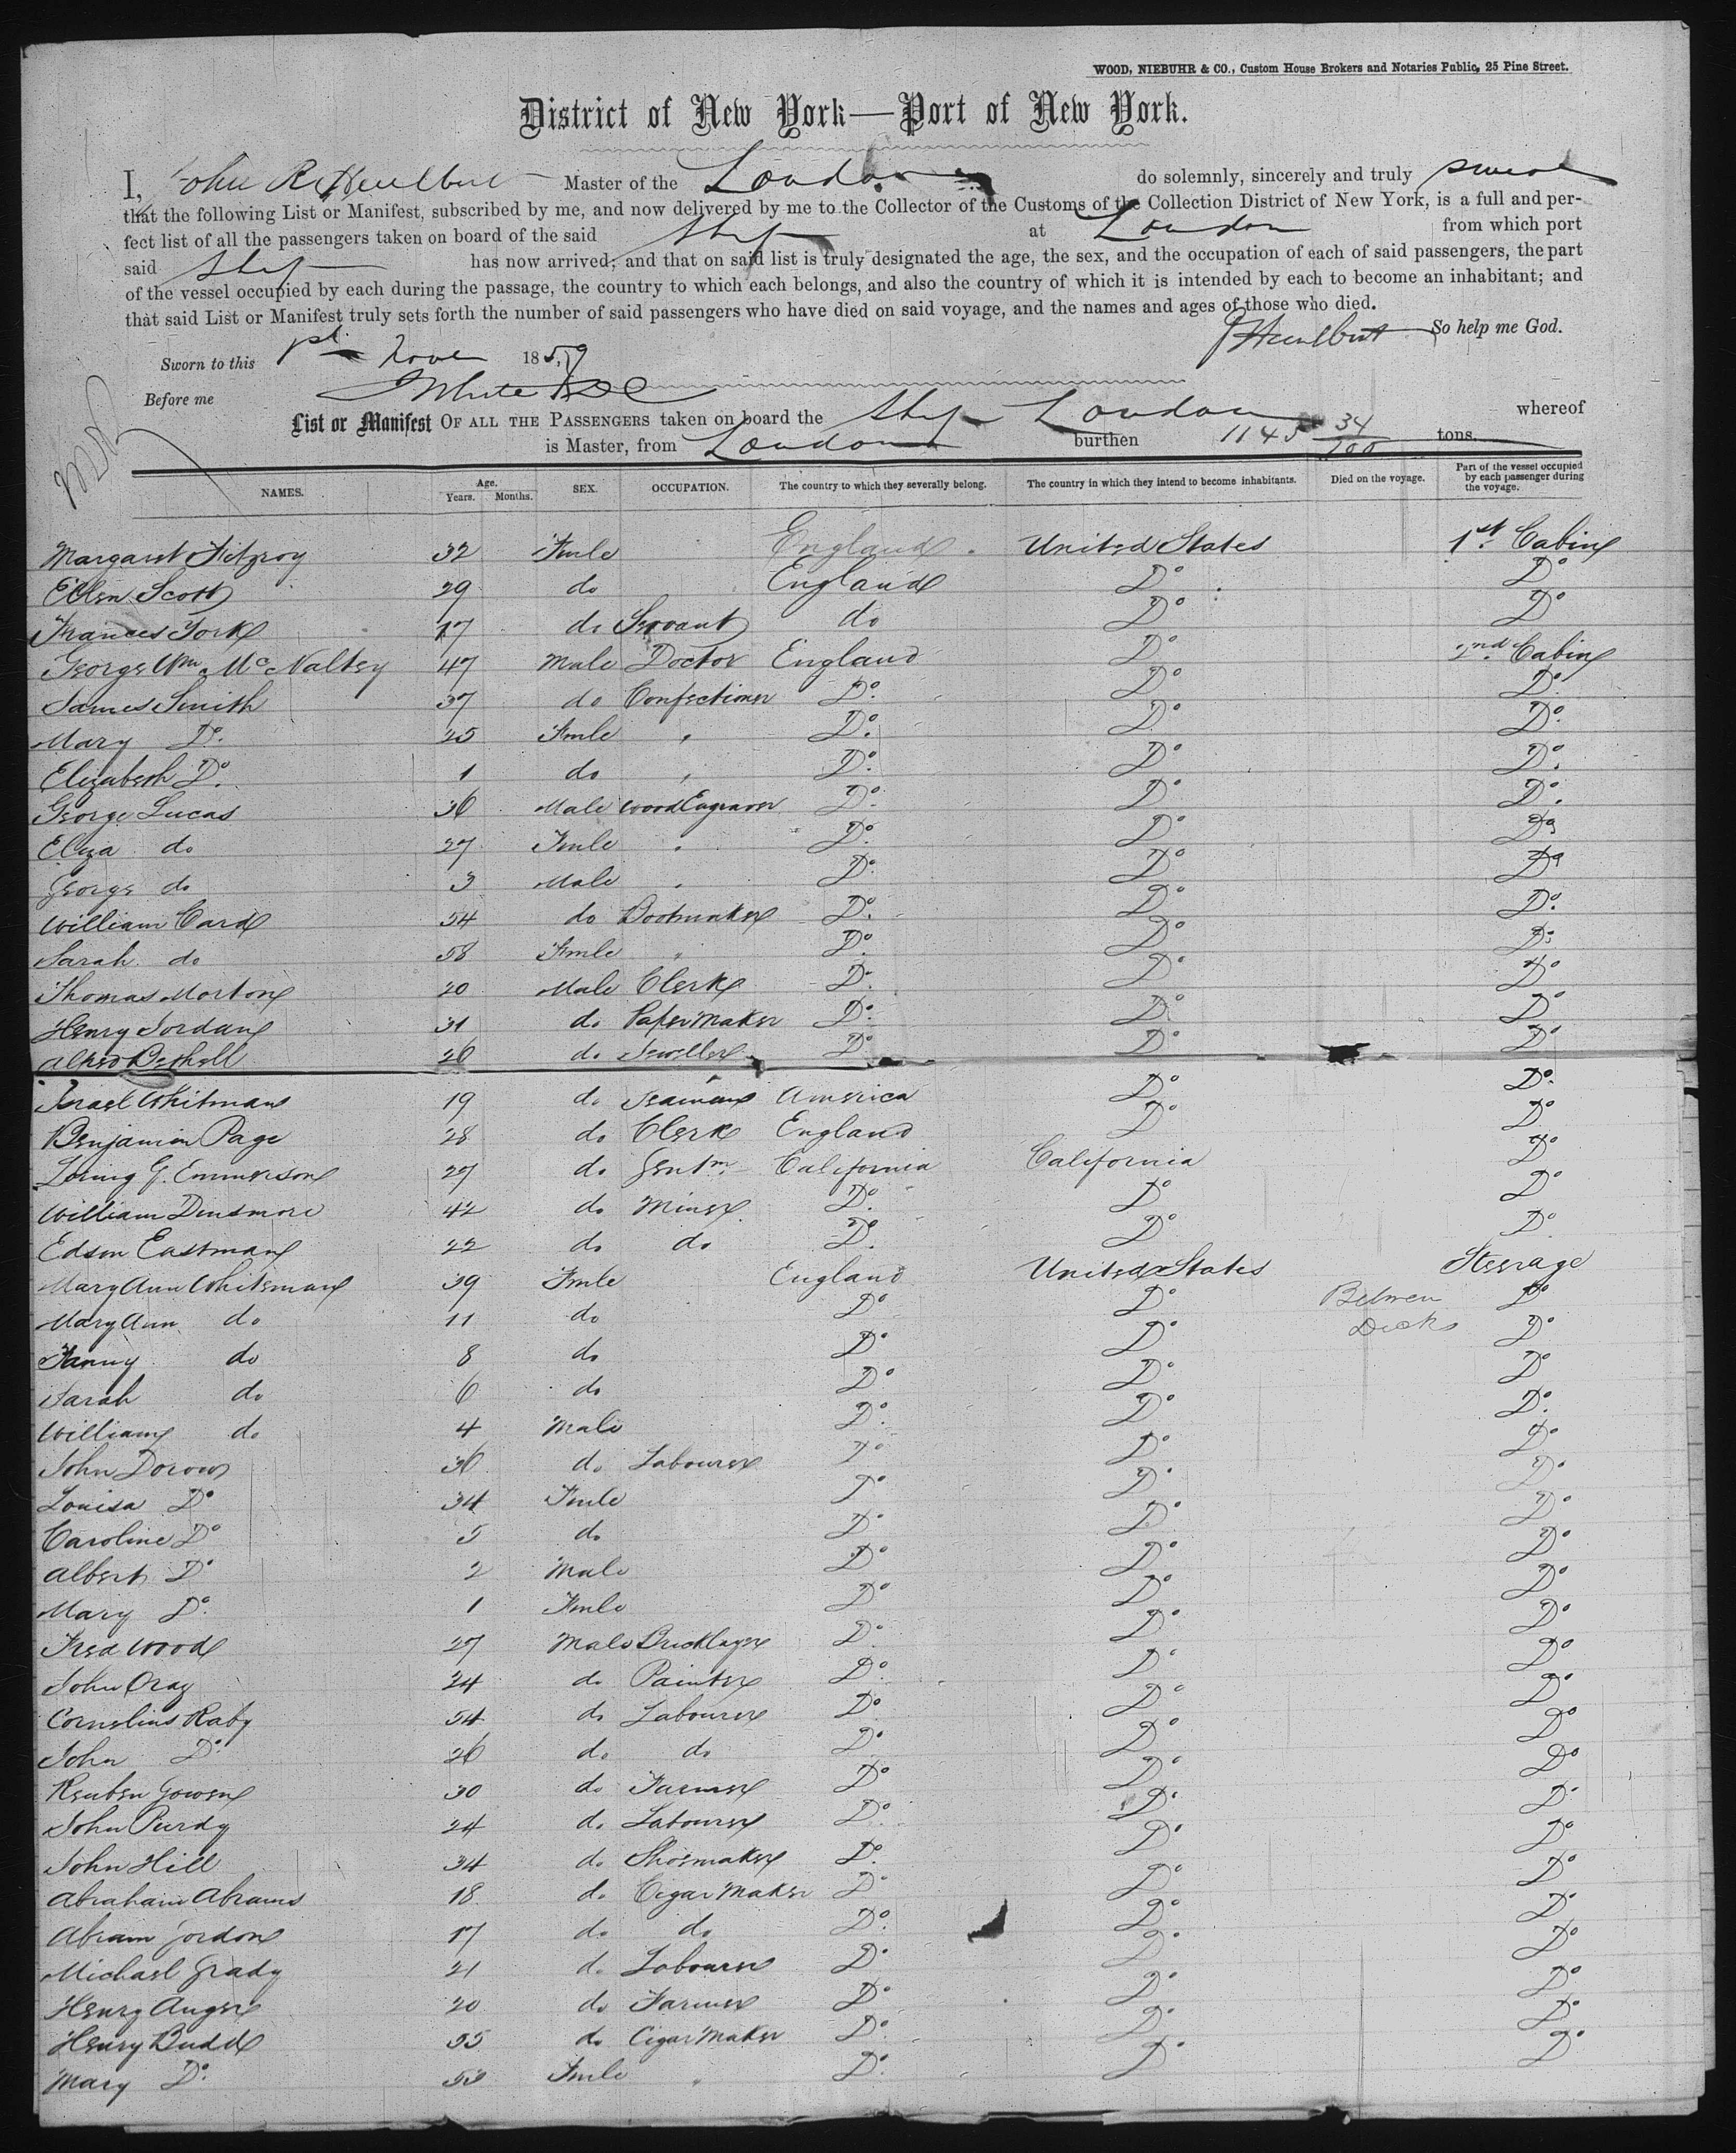 WOOD, NIEBUHR & CO., Custom House Brokers and Notaries Public, 25 Pine Street.
District of New York—Port of New York.
I, John R Hurlbut Master of the London do solemnly, sincerely and truly swear
that the following List or Manifest, subscribed by me, and now delivered by me to the Collector of the Customs of the Collection District of New York, is a full and per-
fect list of all the passengers taken on board of the said Ship at London from which port
said Ship has now arrived; and that on said list is truly designated the age, the sex, and the occupation of each of said passengers, the part
of the vessel occupied by each during the passage, the country to which each belongs, and also the country of which it is intended by each to become an inhabitant; and
that said List or Manifest truly sets forth the number of said passengers who have died on said voyage, and the names and ages of those who died.
So help me God.
JHurlbut
Sworn to this 1st Nover 1859
Before me
List or Manifest OF ALL THE PASSENGERS taken on board the Ship London whereof
is Master, from London burthen 1145 34/100 tons.
NAMES. Age. Years. Months. SEX. OCCUPATION. The country to which they severally belong. The country in which they intend to become inhabitants. Died on the voyage. Part of the vessel occupied by each passenger during the voyage.
Margaret Fitzroy 32 Fmle England United States 1st Cabin
Ellen Scott 29 do England Do Do
Frances York 17 do Servant do Do Do
George Wm McNaltey 47 Male Doctor England Do 2nd Cabin
James Smith 37 do Confectioner Do Do Do
Mary Do 25 Fmle " Do Do Do
Elizabeth Do 1 do " Do Do Do
George Lucas 36 Male Wood Engraver Do Do Do
Eliza do 27 Fmle " Do Do Do
George do 3 Male " Do Do Do
William Card 54 do Bootmaker Do Do Do
Sarah do 58 Fmle " Do Do Do
Thomas Morton 20 Male Clerk Do Do Do
Henry Jordan 31 do Paper Maker Do Do Do
Alfred Bethell 26 do Jeweller Do Do Do
Israel Whitman 19 do Seaman America Do Do
Benjamin Page 28 do Clerk England Do Do
Loring G. Emmerson 27 do Gentm California California Do
William Dinsmore 42 do Miner Do Do Do
Edson Eastman 22 do do Do Do Do
Mary Ann Whiteman 39 Fmle England United States Steerage
Mary Ann do 11 do Do Do Between Do
Fanny do 8 do Do Do Decks Do
Sarah do 6 do Do Do Do
William do 4 Male Do Do Do
John Dorow 36 do Labourer Do Do Do
Louisa Do 34 Fmle Do Do Do
Caroline Do 5 do Do Do Do
Albert Do 2 Male Do Do Do
Mary Do 1 Fmle Do Do Do
Fred Wood 27 Male Bricklayer Do Do Do
John Cray 24 do Painter Do Do Do
Cornelius Raby 54 do Labourer Do Do Do
John Do 26 do do Do Do Do
Reuben Gowen 30 do Farmer Do Do Do
John Purdy 24 do Labourer Do Do Do
John Hill 34 do Shoemaker Do Do Do
Abraham Abrams 18 do Cigar Maker Do Do Do
Abram Gordon 17 do do Do Do Do
Michael Grady 21 do Labourer Do Do Do
Henry Auger 20 do Farmer Do Do Do
Henry Budd 55 do Cigar Maker Do Do Do
Mary Do 53 Fmle " Do Do Do